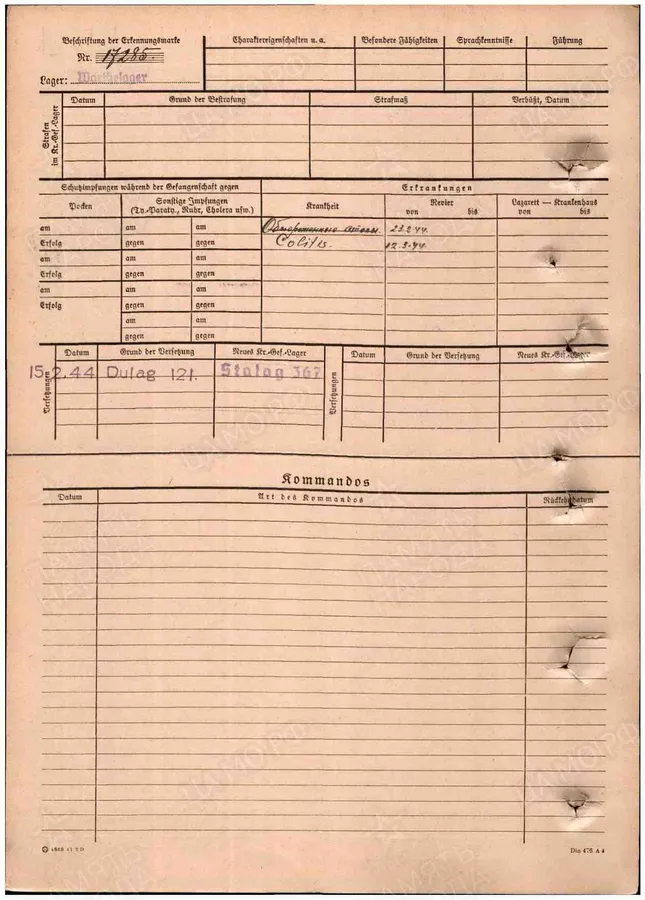 Beschriftung der Erkennungsmarke
Nr. 17285.
Lager: Warthelager
Charaktereigenschaften u. a.
Besondere Fähigkeiten
Sprachkenntnisse
Führung
Strafen im Kr.-Gef.-Lager
Datum
Grund der Bestrafung
Strafmaß
Verbüßt, Datum
Schutzimpfungen während der Gefangenschaft gegen
Erkrankungen
Pocken
Sonstige Impfungen
(Ty.-Paraty., Ruhr, Cholera usw.)
Krankheit
Revier
von bis
Lazarett — Krankenhaus
von bis
am am am
23.2.44.
Erfolg gegen gegen
Colitis. 12.3.44
am am am
Erfolg gegen gegen
am am am
Erfolg gegen gegen
am am
gegen gegen
Versetzungen
Datum
Grund der Versetzung
Neues Kr.-Gef.-Lager
Versetzungen
Datum
Grund der Versetzung
Neues Kr.-Gef.-Lager
15.2.44 Dulag 121. Stalag 367
Kommandos
Datum
Art des Kommandos
Rückkehrdatum
Din 476 A 4
ПАМЯТЬ НАРОДА
ЦАМО РФ